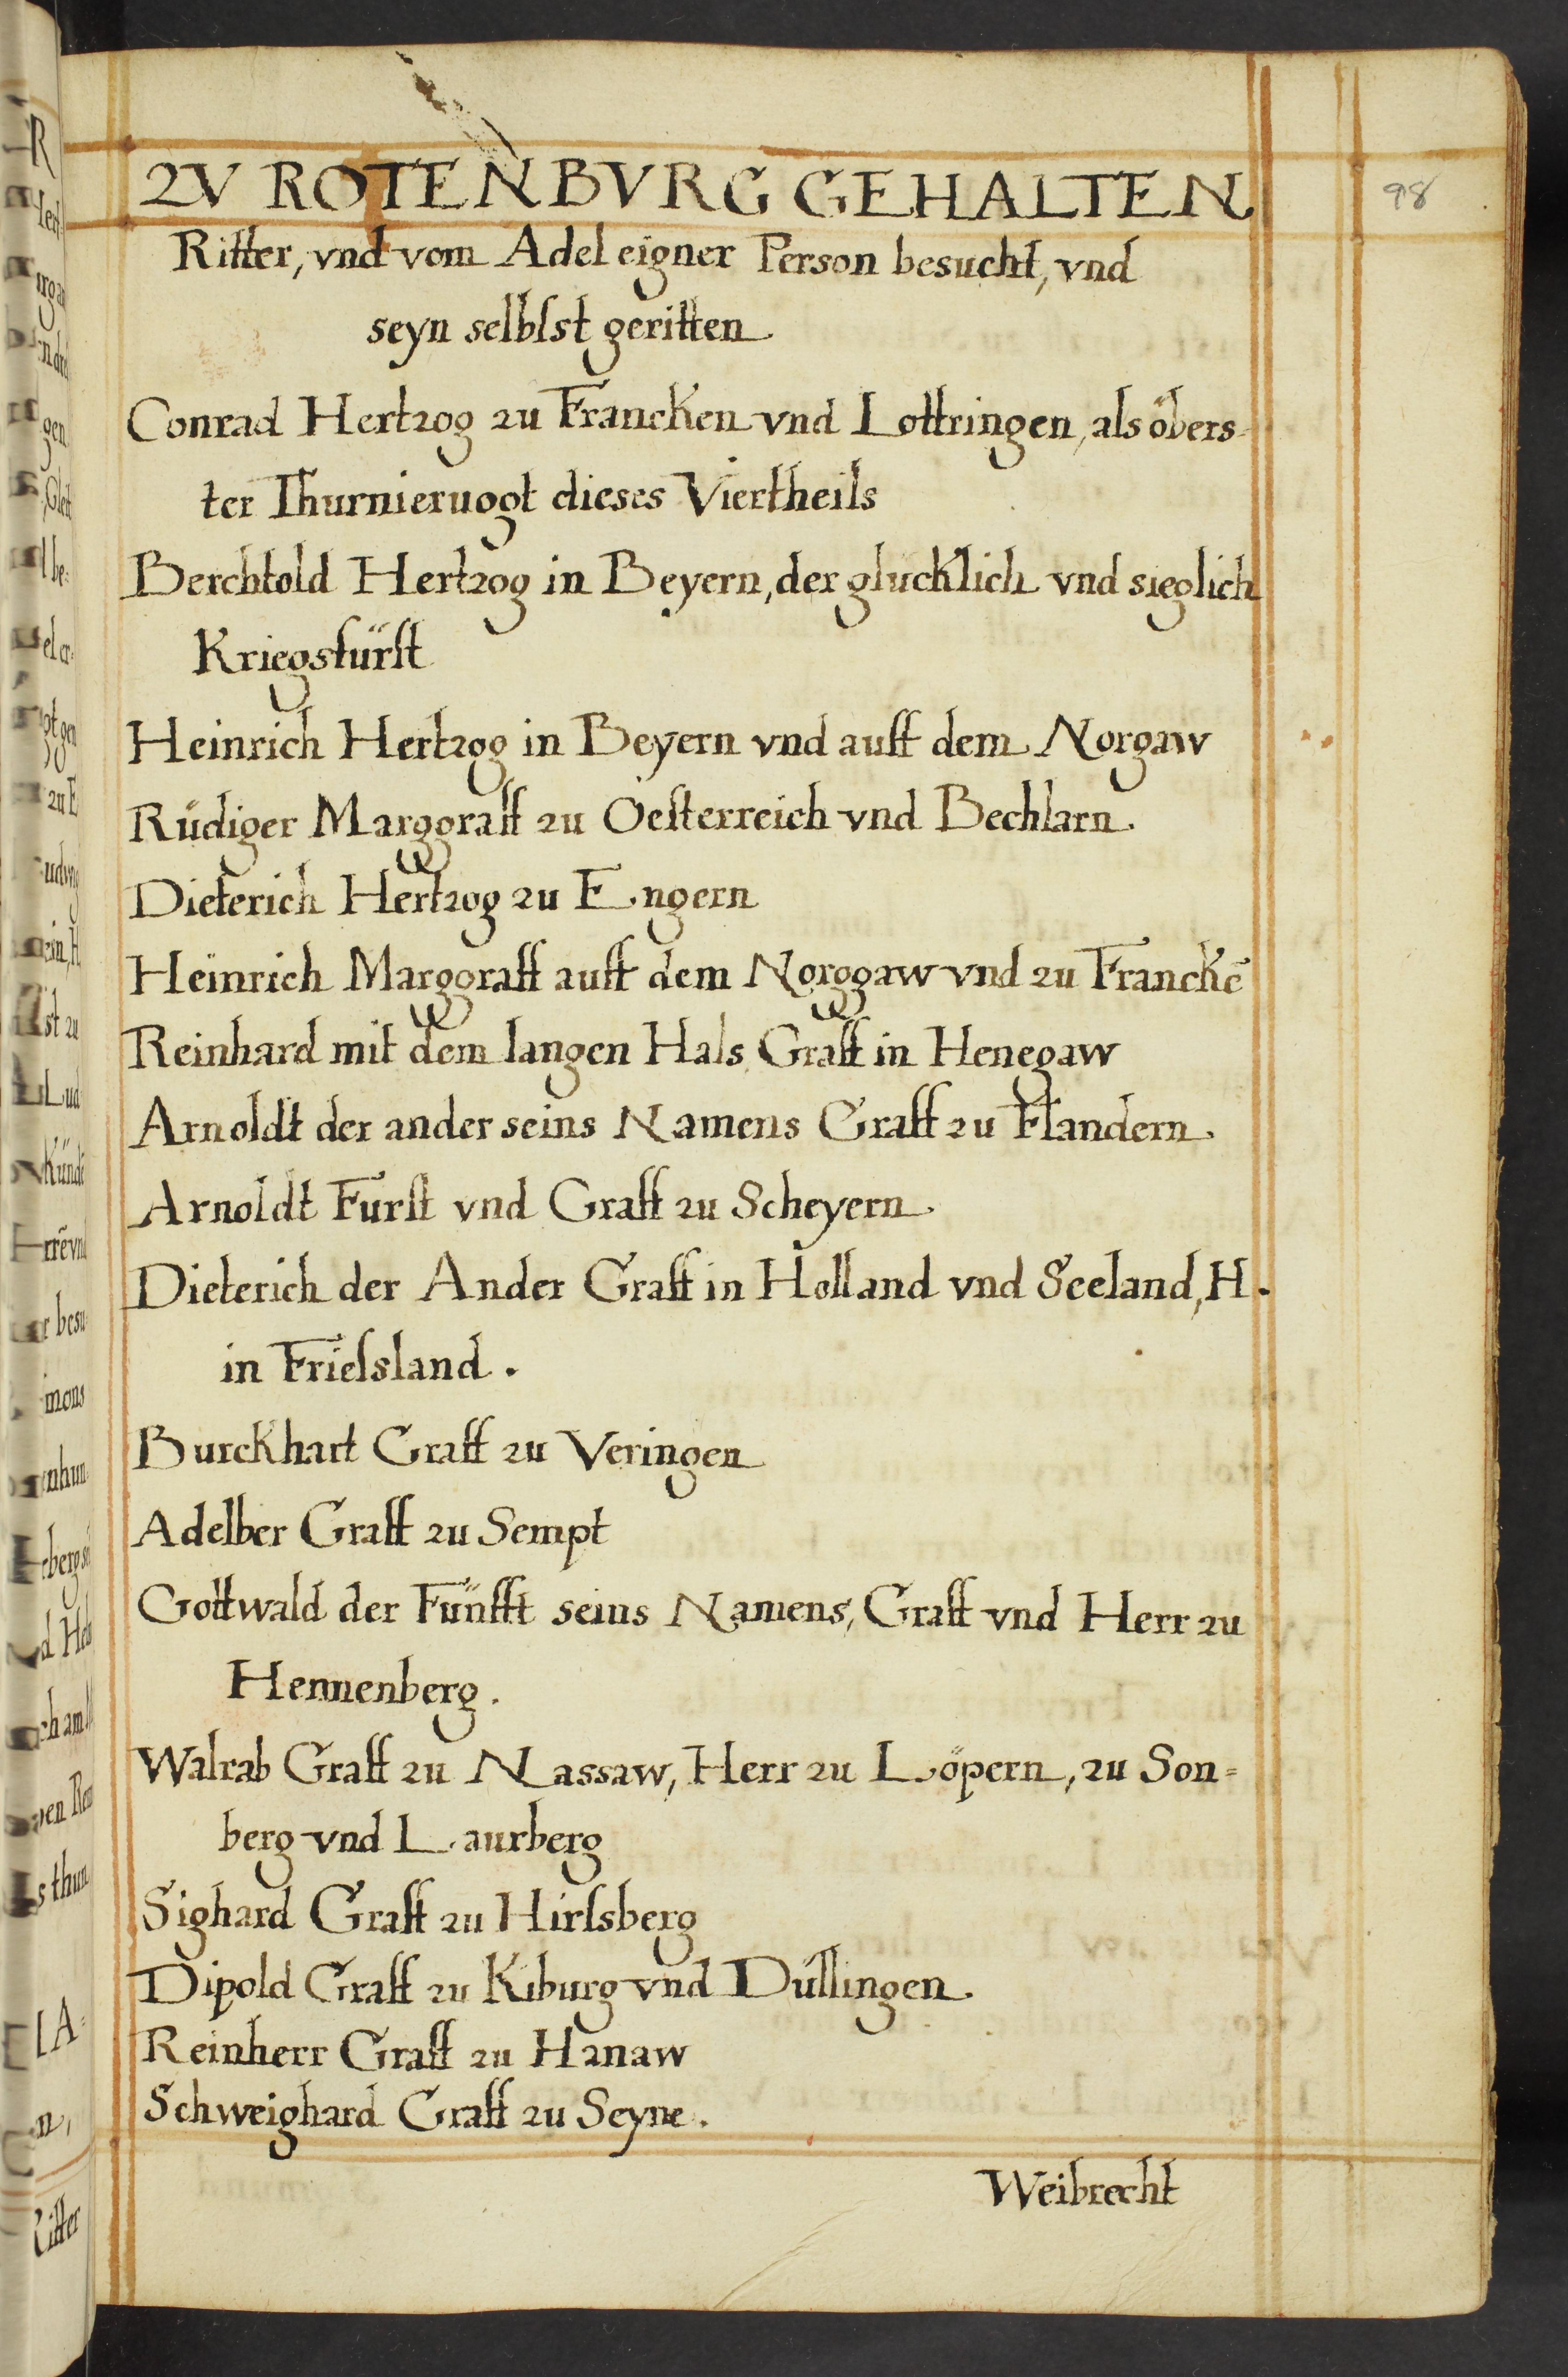 ZV ROTENBVRG GEHALTEN
98
Ritter, vnd vom Adel eigner Person besucht, vnd
seyn selbſst geritten
Conrad Hertzog zu Francken vnd Lottringen, als öbers-
ter Thurnieruogt dieses Viertheils
Berchtold Hertzog in Beyern, der glücklich vnd sieglich
Kriegsfürſt
Heinrich Hertzog in Beyern vnd auff dem Norgaw
Rüdiger Marggraff zu Oeſterreich vnd Bechlarn.
Dieterich Hertzog zu Engern
Heinrich Marggraff auff dem Norggaw vnd zu Franckē
Reinhard mit dem langen Hals Graff in Henegaw
Arnoldt der ander seins Namens Graff zu Flandern.
Arnoldt Furſt vnd Graff zu Scheyern.
Dieterich der Ander Graff in Holland vnd Seeland, H.
in Frieſsland.
Burckhart Graff zu Veringen
Adelber Graff zu Sempt
Gottwald der Fünfft seins Namens, Graff vnd Herr zu
Hennenberg.
Walrab Graff zu Nassaw, Herr zu Löpern, zu Son=
berg vnd Laurberg
Sighard Graff zu Hirſsberg
Dipold Graff zu Kiburg vnd Düllingen.
Reinherr Graff zu Hanaw
Schweighard Graff zu Seyne.
Weibrecht